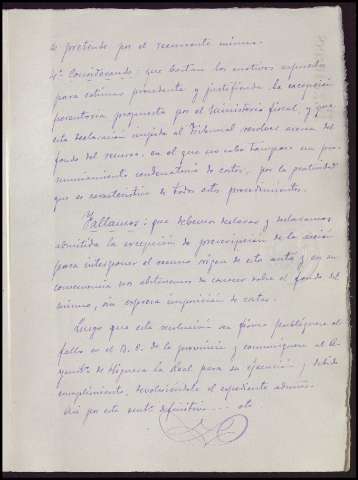 se pretende por el recurrente mismo.
4º Considerando: que bastan los motivos expuestos
para estimar procedente y justificada la excepción
perentoria propuesta por el Ministerio fiscal, y que
esta declaración impide al Tribunal resolver acerca del
fondo del recurso, en el que no cabe tampoco un pro-
nunciamiento condenatorio de costas, por la gratuidad
que es característica de todos estos procedimientos.
Fallamos: que debemos declarar y declaramos
admitida la excepción de prescripción de la acción
para interponer el recurso origen de este auto y en su
consecuencia nos abstenemos de conocer sobre el fondo del
mismo, sin expresa imposición de costas.
Luego que esta resolución sea firme publíquese el
fallo en el B. O. de la provincia y comuníquese al A-
yuntº. de Higuera la Real para su ejecución y debido
cumplimiento, devolviéndole el expediente admvo.
Así por esta sentª. definitiva